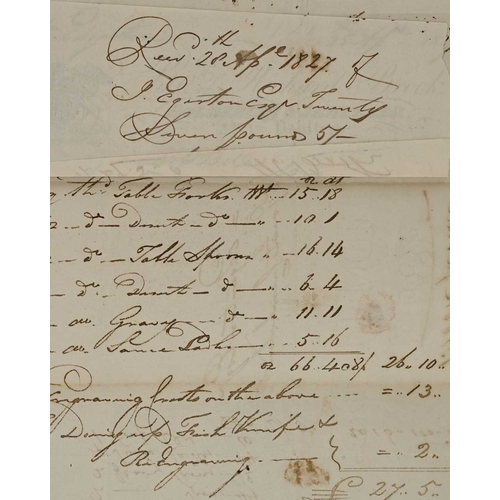 Recd. 28th Apl. 1827 of
J. Egerton Esqr. Twenty
Seven pounds 5/-
oz dt
thd. Table Forks Wt 15.18
do Desert do 10.1
do Table Spoons 16.14
do Desert do 6.4
do. Gravy do 11.11
do. Sauce Ladles 5.16
oz 66.4 @ 8/ 26.10..
Engraving Crests on the above = .. 13..
Doing up Fish Knife &
ReEngraving = .. 2..
£ 27.5.